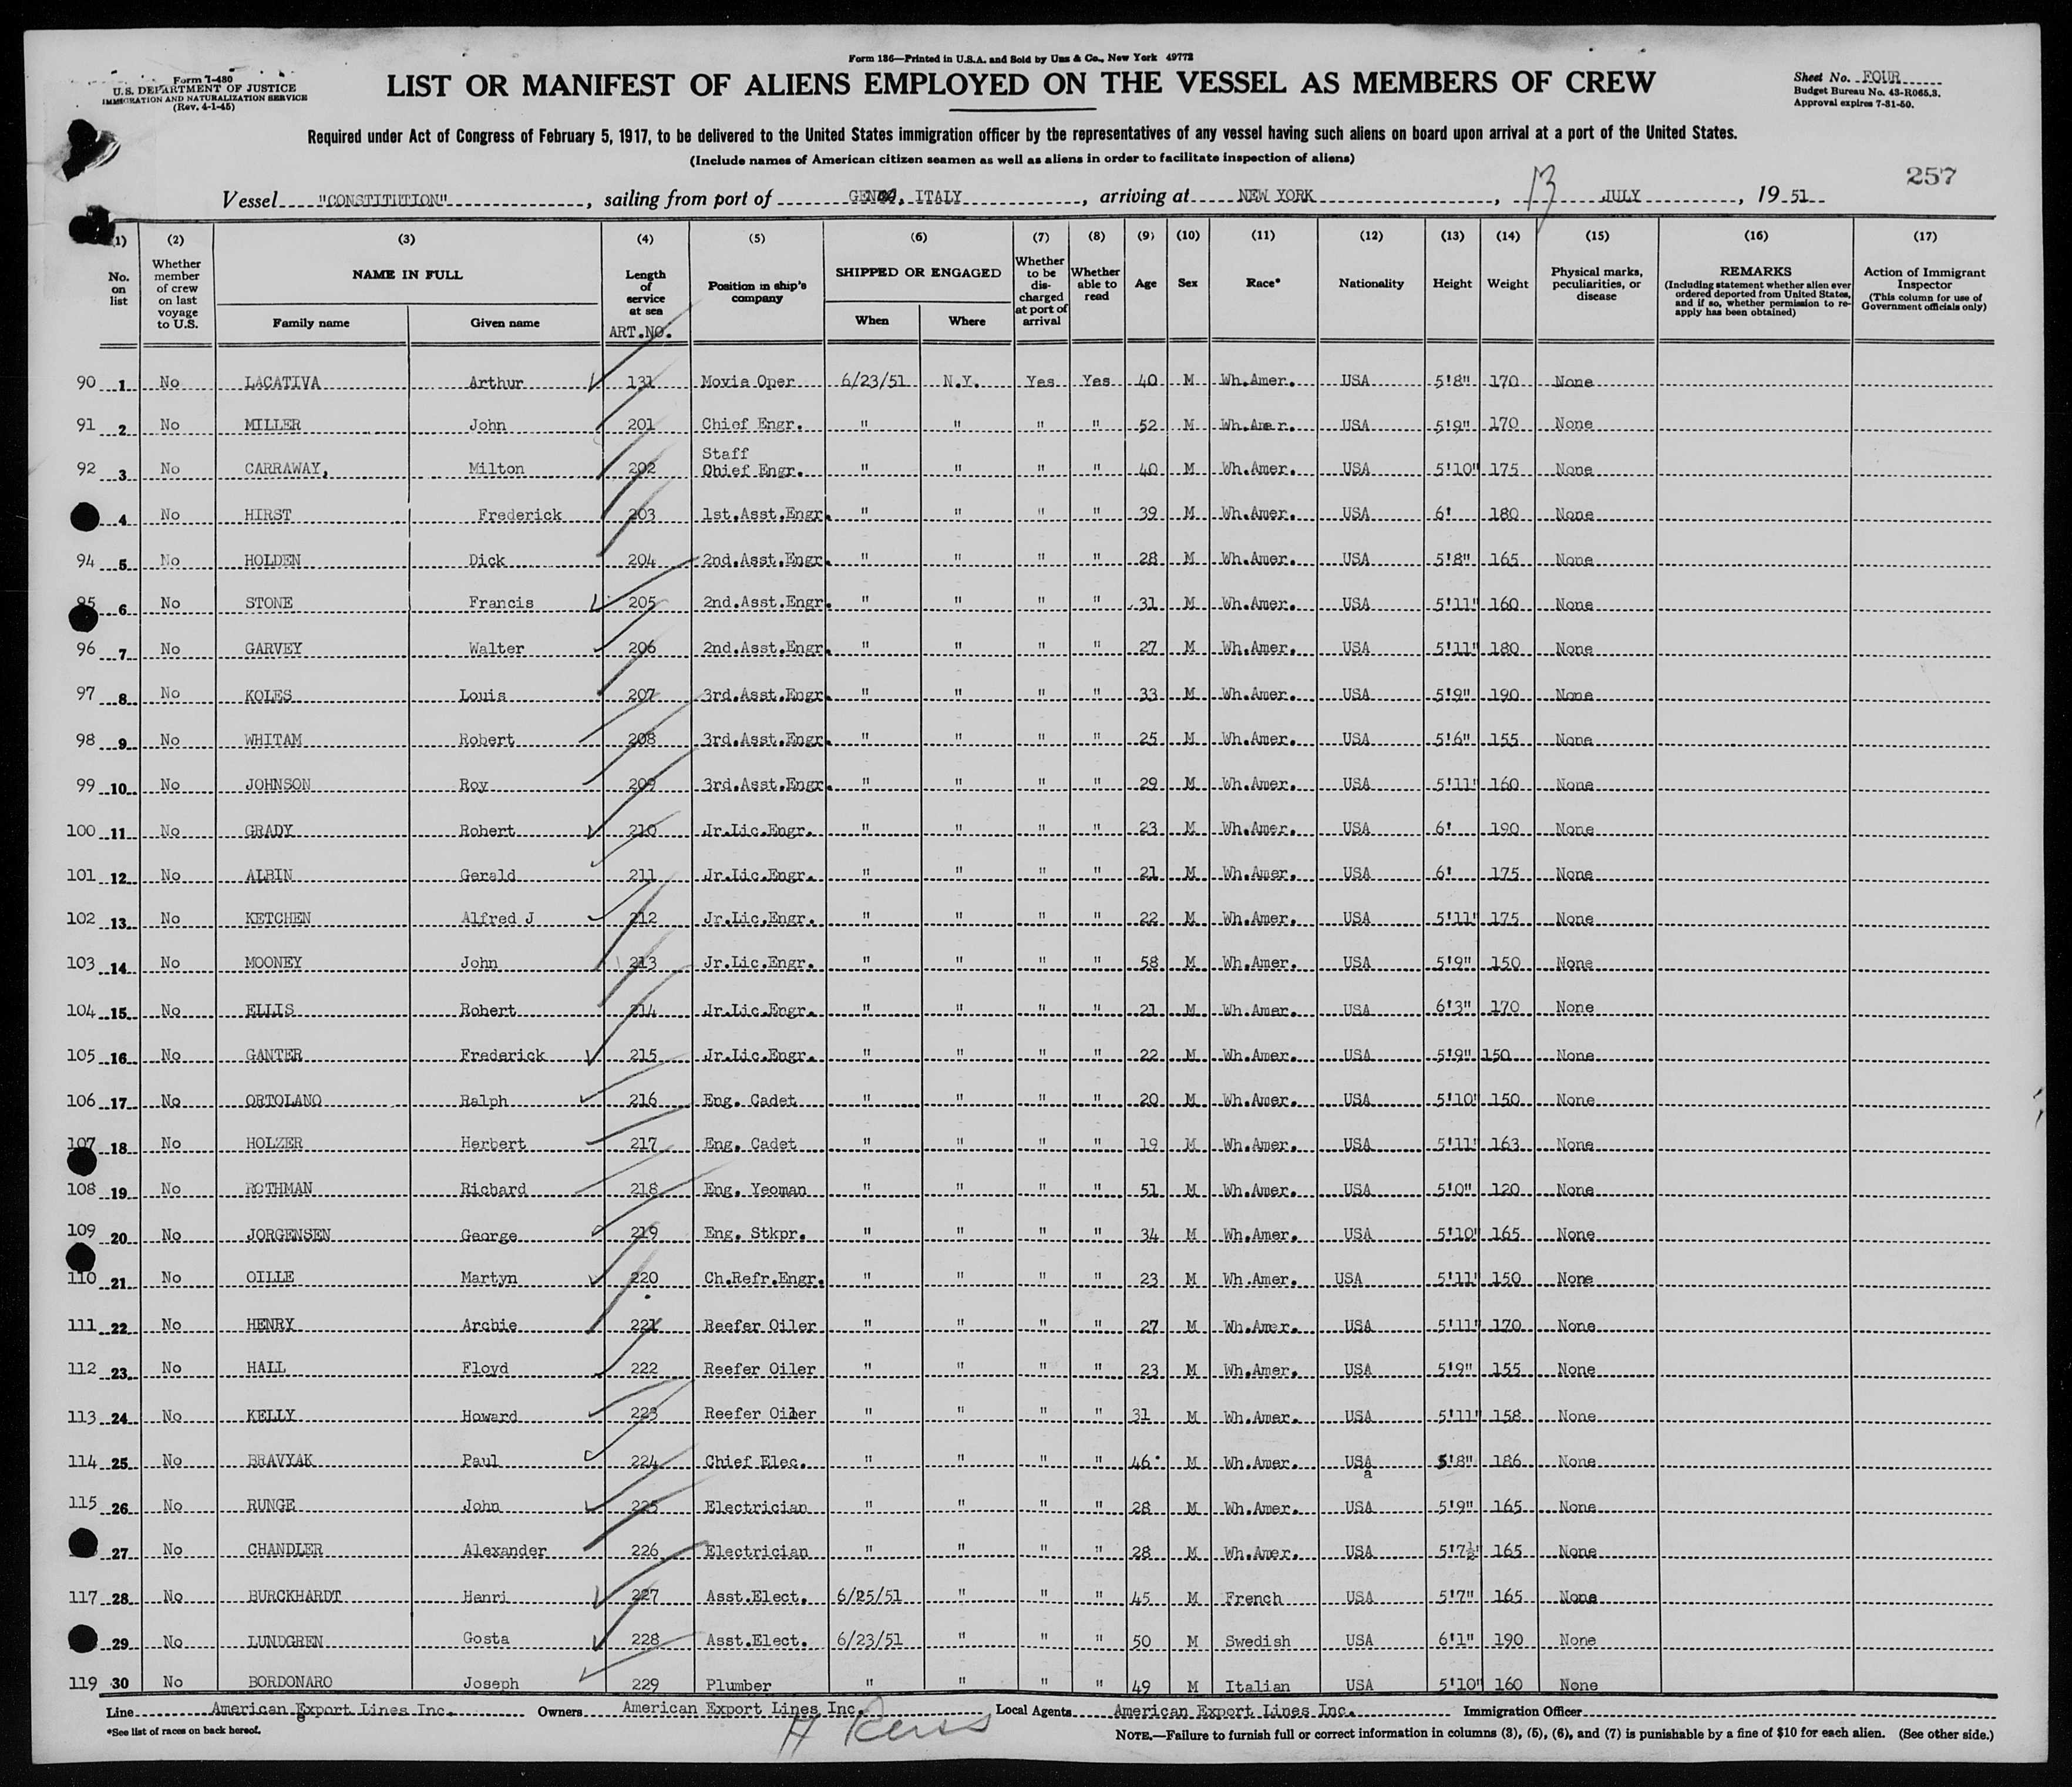 Form 136—Printed in U.S.A. and Sold by Unz & Co., New York 49772
Form I-480
U.S. DEPARTMENT OF JUSTICE
IMMIGRATION AND NATURALIZATION SERVICE
(Rev. 4-1-45)
LIST OR MANIFEST OF ALIENS EMPLOYED ON THE VESSEL AS MEMBERS OF CREW
Sheet No. FOUR
Budget Bureau No. 43-R065.3.
Approval expires 7-31-50.
Required under Act of Congress of February 5, 1917, to be delivered to the United States immigration officer by the representatives of any vessel having such aliens on board upon arrival at a port of the United States.
(Include names of American citizen seamen as well as aliens in order to facilitate inspection of aliens)
257
Vessel "CONSTITUTION", sailing from port of GENOA, ITALY, arriving at NEW YORK, 13 JULY, 19 51
(1) (2) (3) (4) (5) (6) (7) (8) (9) (10) (11) (12) (13) (14) (15) (16) (17)
No. on list
Whether member of crew on last voyage to U.S.
NAME IN FULL
Family name Given name
Length of service at sea
ART.NO.
Position in ship's company
SHIPPED OR ENGAGED
When Where
Whether to be discharged at port of arrival
Whether able to read
Age Sex Race* Nationality Height Weight
Physical marks, peculiarities, or disease
REMARKS
(Including statement whether alien ever ordered deported from United States, and if so, whether permission to re-apply has been obtained)
Action of Immigrant Inspector
(This column for use of Government officials only)
90 1 No LACATIVA Arthur 131 Movia Oper 6/23/51 N.Y. Yes Yes 40 M Wh.Amer. USA 5'8" 170 None
91 2 No MILLER John 201 Chief Engr. " " " " 52 M Wh.Amer. USA 5'9" 170 None
92 3 No CARRAWAY, Milton 202 Staff Chief Engr. " " " " 40 M Wh.Amer. USA 5'10" 175 None
4 No HIRST Frederick 203 1st.Asst.Engr. " " " " 39 M Wh.Amer. USA 6' 180 None
94 5 No HOLDEN Dick 204 2nd.Asst.Engr. " " " " 28 M Wh.Amer. USA 5'8" 165 None
95 6 No STONE Francis 205 2nd.Asst.Engr. " " " " 31 M Wh.Amer. USA 5'11" 160 None
96 7 No GARVEY Walter 206 2nd.Asst.Engr. " " " " 27 M Wh.Amer. USA 5'11" 180 None
97 8 No KOLES Louis 207 3rd.Asst.Engr. " " " " 33 M Wh.Amer. USA 5'9" 190 None
98 9 No WHITAM Robert 208 3rd.Asst.Engr. " " " " 25 M Wh.Amer. USA 5'6" 155 None
99 10 No JOHNSON Roy 209 3rd.Asst.Engr. " " " " 29 M Wh.Amer. USA 5'11" 160 None
100 11 No GRADY Robert 210 Jr.Lic.Engr. " " " " 23 M Wh.Amer. USA 6' 190 None
101 12 No ALBIN Gerald 211 Jr.Lic.Engr. " " " " 21 M Wh.Amer. USA 6' 175 None
102 13 No KETCHEN Alfred J 212 Jr.Lic.Engr. " " " " 22 M Wh.Amer. USA 5'11" 175 None
103 14 No MOONEY John 213 Jr.Lic.Engr. " " " " 58 M Wh.Amer. USA 5'9" 150 None
104 15 No ELLIS Robert 214 Jr.Lic.Engr. " " " " 21 M Wh.Amer. USA 6'3" 170 None
105 16 No GANTER Frederick 215 Jr.Lic.Engr. " " " " 22 M Wh.Amer. USA 5'9" 150 None
106 17 No ORTOLANO Ralph 216 Eng. Cadet " " " " 20 M Wh.Amer. USA 5'10" 150 None
107 18 No HOLZER Herbert 217 Eng. Cadet " " " " 19 M Wh.Amer. USA 5'11" 163 None
108 19 No ROTHMAN Richard 218 Eng. Yeoman " " " " 51 M Wh.Amer. USA 5'0" 120 None
109 20 No JORGENSEN George 219 Eng. Stkpr. " " " " 34 M Wh.Amer. USA 5'10" 165 None
110 21 No OILLE Martyn 220 Ch.Refr.Engr. " " " " 23 M Wh.Amer. USA 5'11" 150 None
111 22 No HENRY Archie 221 Reefer Oiler " " " " 27 M Wh.Amer. USA 5'11" 170 None
112 23 No HALL Floyd 222 Reefer Oiler " " " " 23 M Wh.Amer. USA 5'9" 155 None
113 24 No KELLY Howard 223 Reefer Oiler " " " " 31 M Wh.Amer. USA 5'11" 158 None
114 25 No BRAVYAK Paul 224 Chief Elec. " " " " 46 M Wh.Amer. USA 5'8" 186 None
115 26 No RUNGE John 225 Electrician " " " " 28 M Wh.Amer. USA 5'9" 165 None
27 No CHANDLER Alexander 226 Electrician " " " " 28 M Wh.Amer. USA 5'7½" 165 None
117 28 No BURCKHARDT Henri 227 Asst.Elect. 6/25/51 " " " 45 M French USA 5'7" 165 None
29 No LUNDGREN Gosta 228 Asst.Elect. 6/23/51 " " " 50 M Swedish USA 6'1" 190 None
119 30 No BORDONARO Joseph 229 Plumber " " " " 49 M Italian USA 5'10" 160 None
Line American Export Lines Inc. Owners American Export Lines Inc. Local Agents American Export Lines Inc. Immigration Officer
*See list of races on back hereof.
NOTE.—Failure to furnish full or correct information in columns (3), (5), (6), and (7) is punishable by a fine of $10 for each alien. (See other side.)